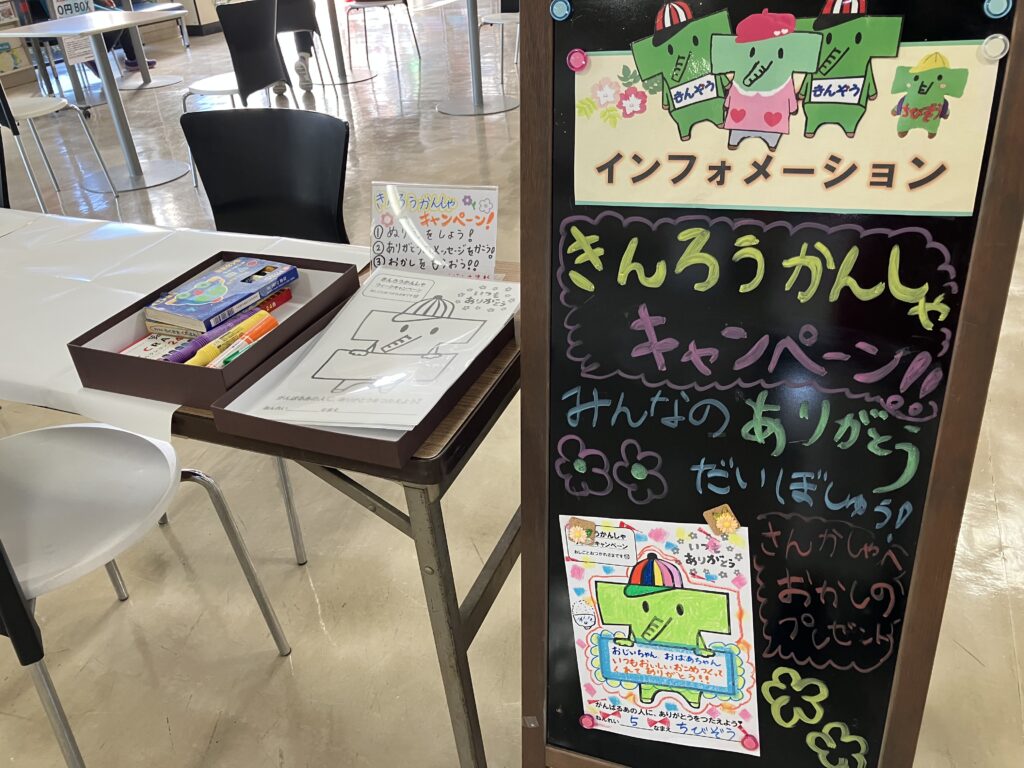 0円BOX
きんぞう
きんぞう
ちびぞう
インフォメーション
きんろうかんしゃ
キャンペーン!!
みんなの ありがとう
だいぼしゅう!
さんかしゃへ
おかしの
プレゼント
キャンペーン
おしごとおつかれさまです
いつも
ありがとう
おじいちゃん、おばあちゃん
いつもおいしいおこめつくって
くれてありがとう!!
がんばるあの人に、ありがとうをつたえよう!
ねんれい 5 なまえ ちびぞう
きんろうかんしゃ
キャンペーン!
① ぬりえをしよう!
② ありがとうメッセージをかこう!
③ おかしをもらおう!!
きんろうかんしゃ
いつも
ありがとう
がんばるあの人に、ありがとうをつたえよう!
ねんれい なまえ